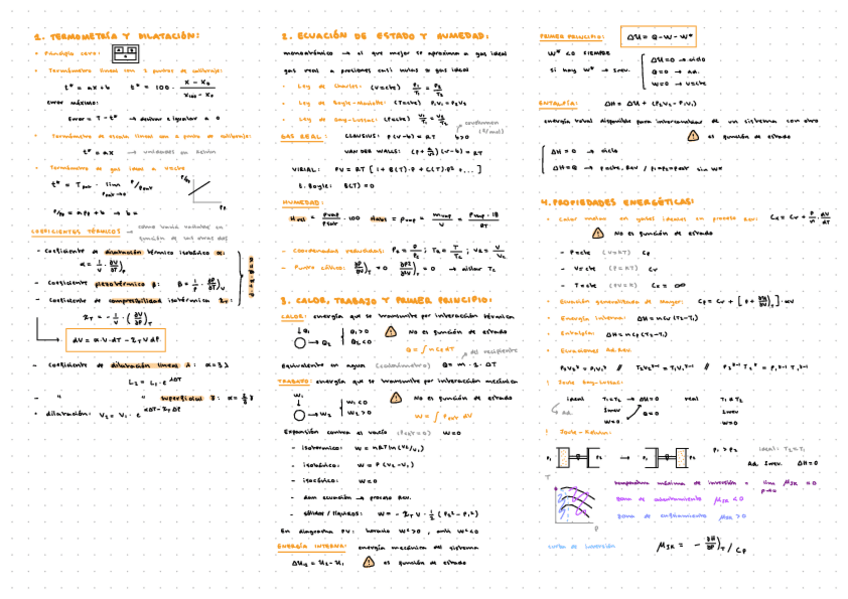 1. TERMOMETRÍA Y DILATACIÓN:
• Principio cero:
• Termómetro lineal con 2 puntos de calibraje:
t* = ax + b   t* = 100 · (x - x₀) / (x₁₀₀ - x₀)
Error máximo:
Error = T - t* → derivar e igualar a 0
• Termómetro de escala lineal con 1 punto de calibraje:
t* = ax → unidades en kelvin
• Termómetro de gas ideal a V=cte
COEFICIENTES TÉRMICOS → cómo varía variable en función de las otras dos
• Coeficiente de dilatación térmico isobárico α:
α = 1/V · ∂V/∂T)P
• Coeficiente piezotérmico β: β = 1/P · ∂P/∂T)V
• Coeficiente de compresibilidad isotérmica χT:
χT = - 1/V · (∂V/∂P)T
dV = α·V·dT - χT V dP
- Coeficiente de dilatación lineal λ: α = 3λ
L₂ = L₁ · e^λΔT
- " " superficial
• dilatación: V₂ = V₁ · e^αΔT - χTΔP
2. ECUACIÓN DE ESTADO Y HUMEDAD:
monoatómico → el que mejor se aproxima a gas ideal
gas real a presiones casi nulas → gas ideal
• Ley de Charles: (V=cte) P₁/T₁ = P₂/T₂
• Ley de Boyle-Mariotte: (T=cte) P₁V₁ = P₂V₂
• Ley de Gay-Lussac: (P=cte) V₁/T₁ = V₂/T₂
GAS REAL: CLAUSIUS: P(v-b) = RT   b>0
VAN DER WALLS: (P + a/v²)(v-b) = RT
VIRIAL: PV = RT [1 + B(T)·P + C(T)·P² + ...]
t. Boyle: B(T) = 0
HUMEDAD:
- Coordenadas reducidas: PR = P/Pc ; TR = T/Tc ; VR = V/Vc
- Punto crítico: ∂P/∂V)T = 0   ∂²P/∂V²)T = 0 → aislar Tc
3. CALOR, TRABAJO Y PRIMER PRINCIPIO:
CALOR: energía que se transmite por interacción térmica
Q₁   Q₂   Q₁>0   Q₂<0   No es función de estado
Q = ∫ncdT
Equivalente en agua (calorímetro) Q = m · c · ΔT
TRABAJO: energía que se transmite por interacción mecánica
W₁   W₂   W₁<0   W₂>0   No es función de estado
W = ∫Pext dV
Expansión contra el vacío (Pext=0)   W=0
- isotérmico: W = nRT ln(V₂/V₁)
- isobárico: W = P(V₂-V₁)
- isocórico: W=0
- dan ecuación → proceso Rev.
- sólidos / líquidos: W = - χT V · 1/2 (P₂² - P₁²)
En diagrama PV: horario W>0, anti W<0
ENERGÍA INTERNA: energía mecánica del sistema
ΔU₁₂ = U₂ - U₁   es función de estado
PRIMER PRINCIPIO: ΔU = Q - W - W*
W* <0 SIEMPRE
Si hay W* → Irrev.
ΔU=0 → ciclo
Q=0 → AD.
W=0 → V=cte
ENTALPÍA: ΔH = ΔU + (P₂V₂ - P₁V₁)
energía total disponible para intercambiar de un sistema con otro
es función de estado
ΔH=0 → ciclo
ΔH=Q → P=cte, Rev / P₁=P₂=Pext sin W*
4. PROPIEDADES ENERGÉTICAS:
• Calor molar en gases ideales en proceso Rev: Cx = Cv + P/n · dV/dT
No es función de estado
- P=cte   Cp
- V=cte   Cv
- T=cte   Cx = ∞
• Ecuación generalizada de Mayer: Cp = Cv + [P + ∂U/∂V)T] · αV
• Energía interna: ΔU = n Cv (T₂-T₁)
• Entalpía: ΔH = n Cp (T₂-T₁)
• Ecuaciones Ad. Rev.
! Joule Gay-Lussac:
ideal   T₁=T₂ → ΔU=0   real   T₁≠T₂
Ad.   Irrev   Q=0   Irrev
W=0   W=0
! Joule-Kelvin:
P₁   P₂ → P₁   P₂   P₁ > P₂   ideal: T₂=T₁
Ad. Irrev.   ΔH=0
T
P
temperatura máxima de inversión = lim μJK = 0
P→0
zona de calentamiento μJK <0
zona de enfriamiento μJK >0
curva de inversión   μJK = - ∂H/∂P)T / Cp